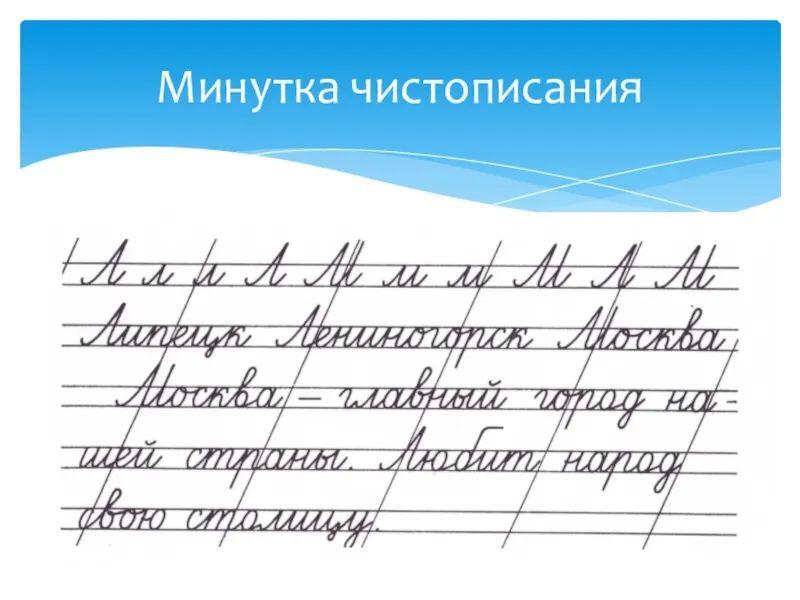 Минутка чистописания
Л л л Л М м м М Л М
Липецк Лениногорск Москва
Москва – главный город на-
шей страны. Любит народ
свою столицу.